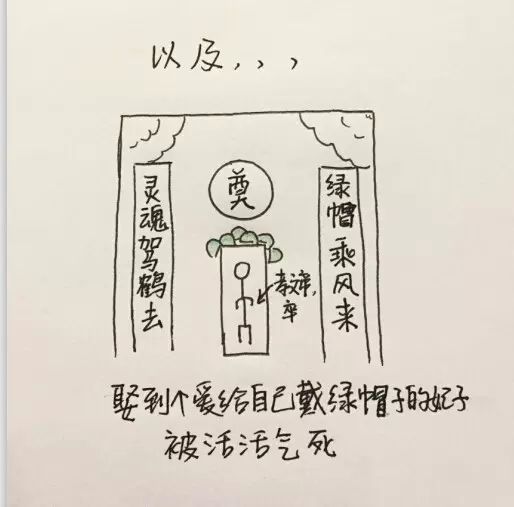 以及,,,
奠
灵魂驾鹤去
绿帽乘风来
卒
娶到个爱给自己戴绿帽子的妃子
被活活气死